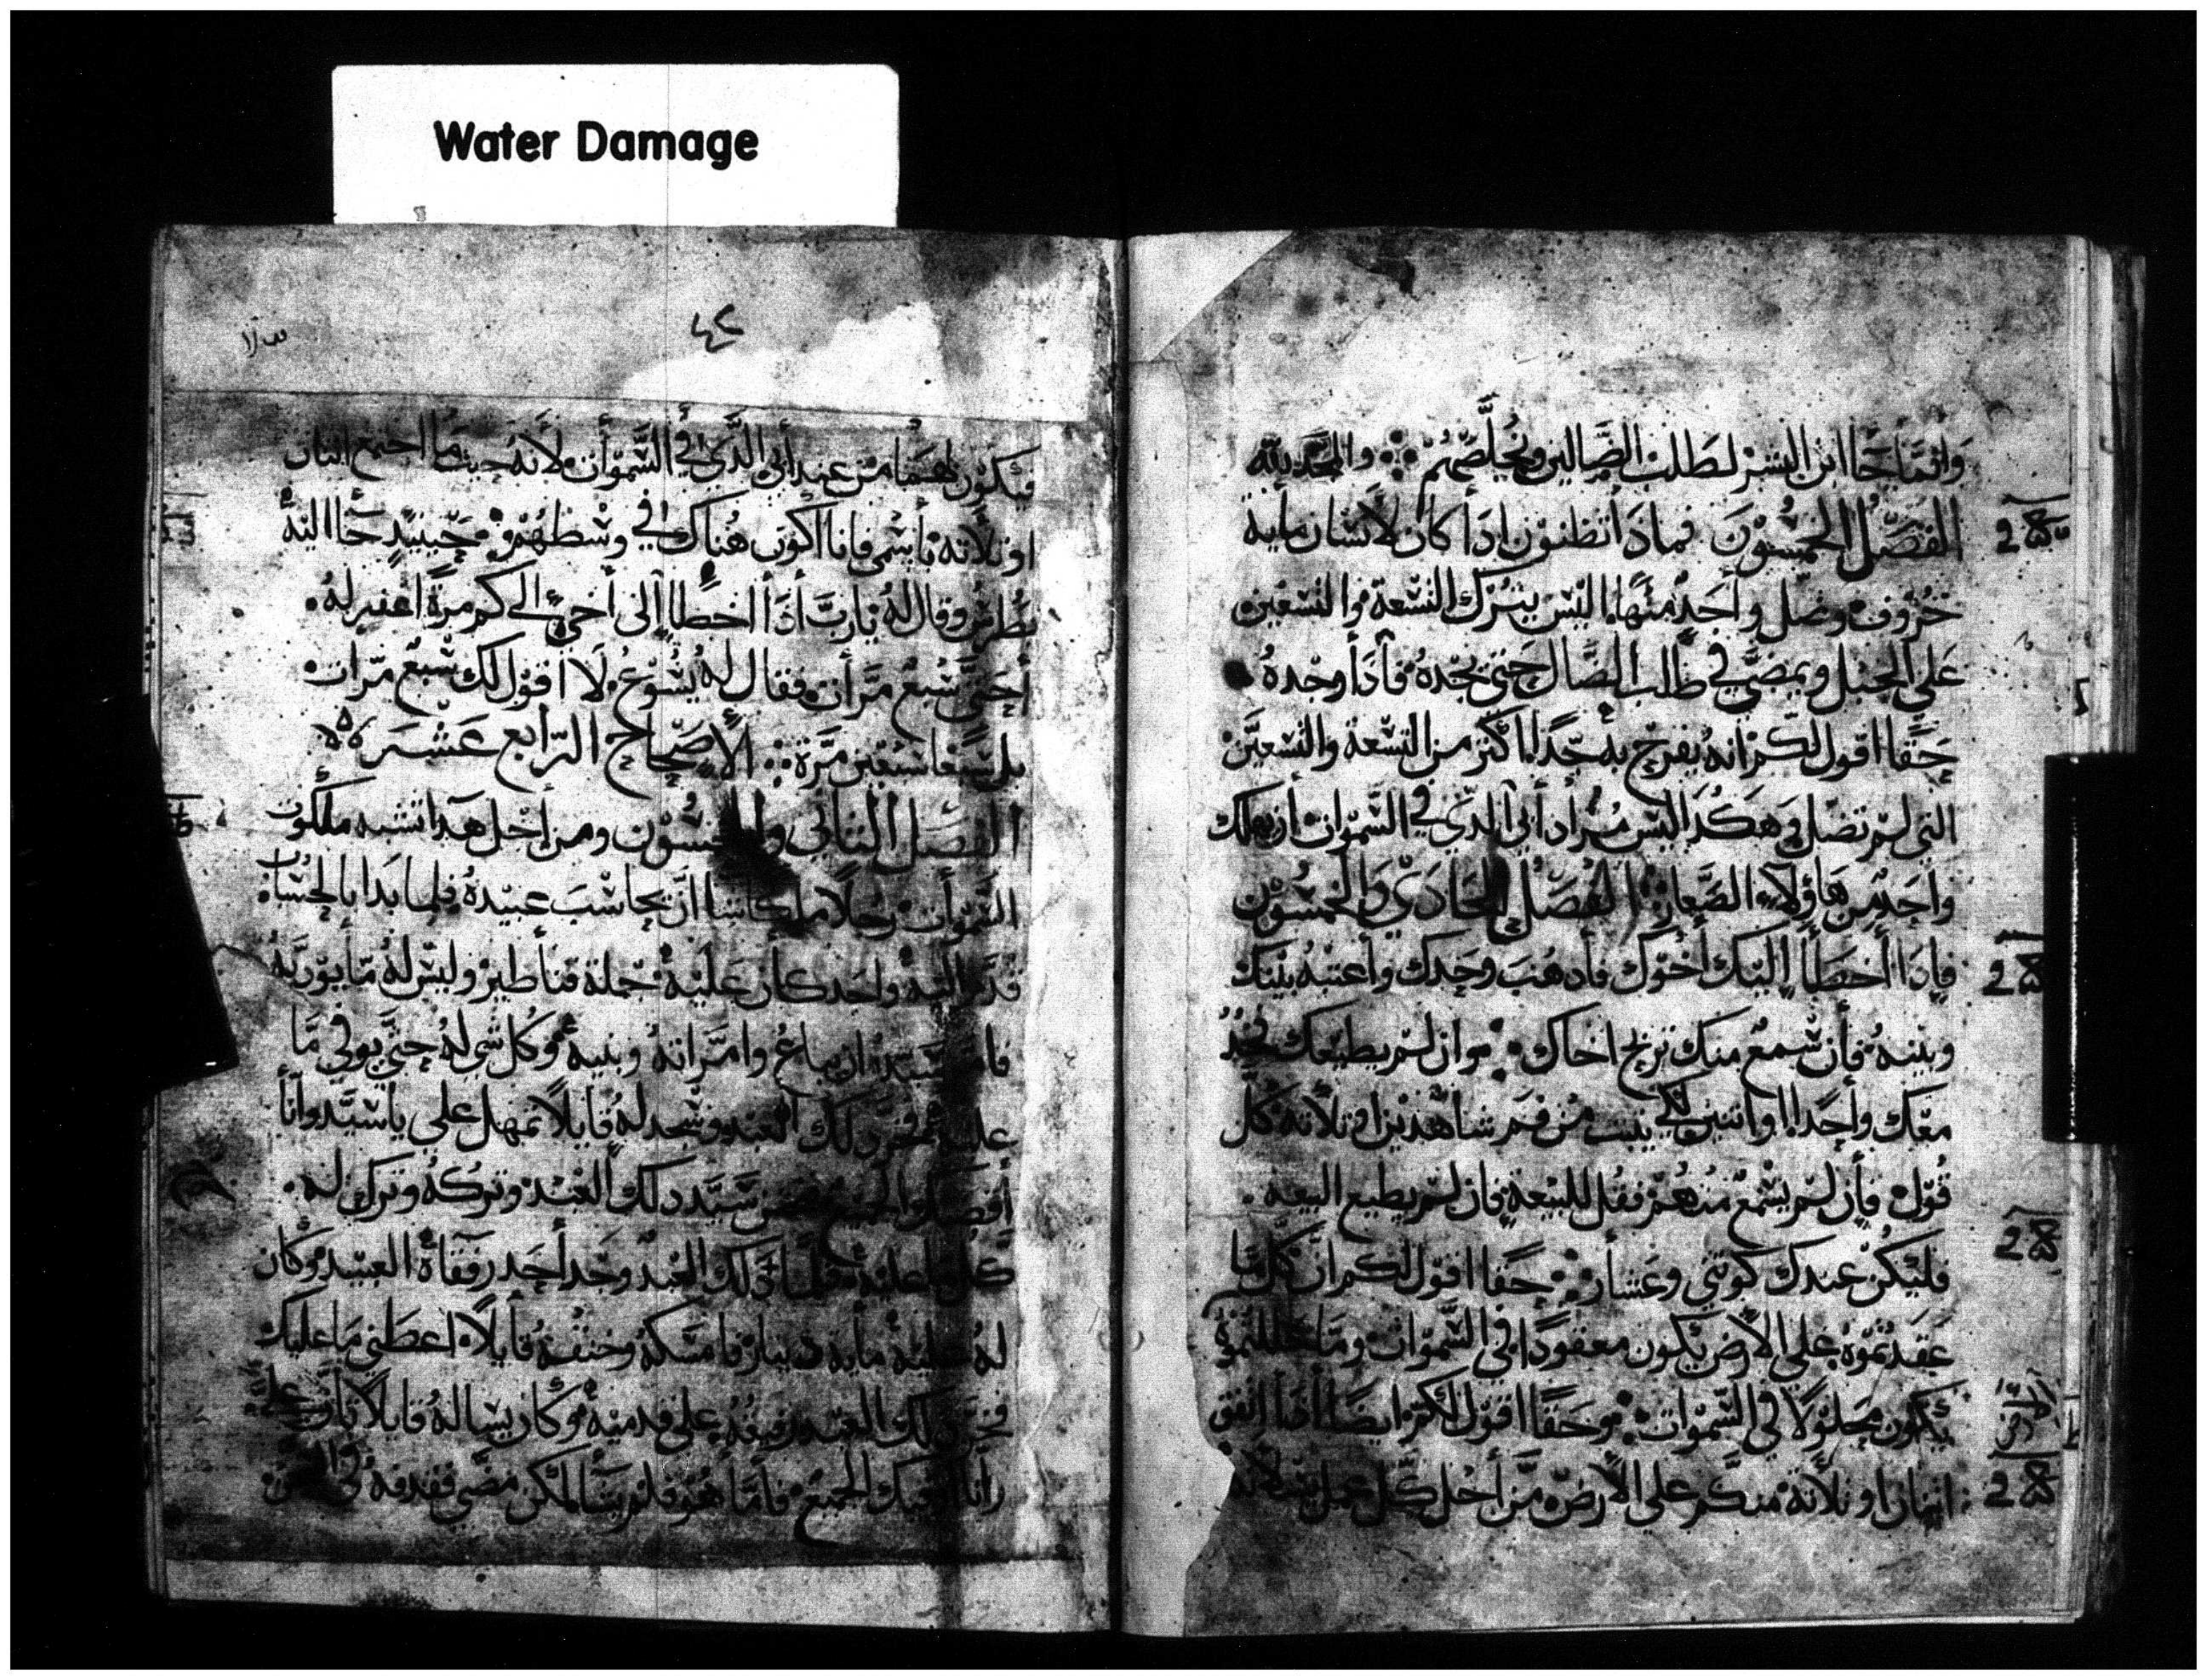 Water Damage
وانما جا ابن البشر لطلب الضالين ويخلصهم والمجد لله
الفصل الخمسون فماذا تظنون اذا كان لانسان مايه
خروف وضل واحد منها اليس يترك التسعة والتسعين
علي الجبل ويمضي في طلب الضال حتي يجده فاذا وجده
حقا اقول لكم انه يفرح به جدا اكثر من التسعة والتسعين
التي لم تضل هكذا ليس مراد ابي الذي في السموات ان يهلك
واحد من هاولاء الصغار الفصل الحادي والخمسون
فاذا اخطا اليك اخوك فادهب وحدك واعتبه بينك
وبينه فان سمع منك تربح اخاك وان لم يطيعك فخد
معك واحدا واتنين لكي يتبت من فم شاهدين او تلاتة كل
قول فان لم يسمع منهم فقل للبيعة فان لم يطيع البيعه
فليكن عندك كوتني وعشار حقا اقول لكم ان كل ما
عقدتموه علي الارض يكون معقودا في السموات وما حللتموه
يكون محلولا في السموات وحقا اقول لكم ايضا اذا اتفق
اتنان او تلاتة منكم علي الارض من اجل كل عمل
٤٢
فيكون لهما من عند ابي الذي في السموات لانه حيث ما اجتمع اتنان
او تلاته باسمي فانا اكون هناك في وسطهم حينيد جا اليه
بطرس وقال له يارب اذا اخطا الي اخي الي كم مرة اغفر له
احتي سبع مرات فقال له يسوع لا اقول لك سبع مرات
بل سبعا سبعين مرة الاصحاح الرابع عشر
الفصل التاني والخمسون ومن اجل هدا تشبه ملكوت
السموات رجلا ملكا شا ان يحاسب عبيده فلما بدا بالحساب
قدم اليه واحد كان عليه جملة قناطير وليس له ما يوديه
سيده ان يباع وامراته وبنيه وكل شي له حتي يوفي ما
عليه فخر دلك العبد وسجد له قايلا تمهل علي يا سيد وانا
الجميع سيد دلك العبد وتركه وترك له
عليه دلك العبد وجد احد رفقاة العبيد وكان
له عليه ماية دينار فامسكه وخنقه قايلا اعطني ما عليك
فخر دلك العبد علي قدميه وكان يساله قايلا تان علي
وانا اوفيك الجميع فاما هو فلم يشا لكن مضي فقدفه في